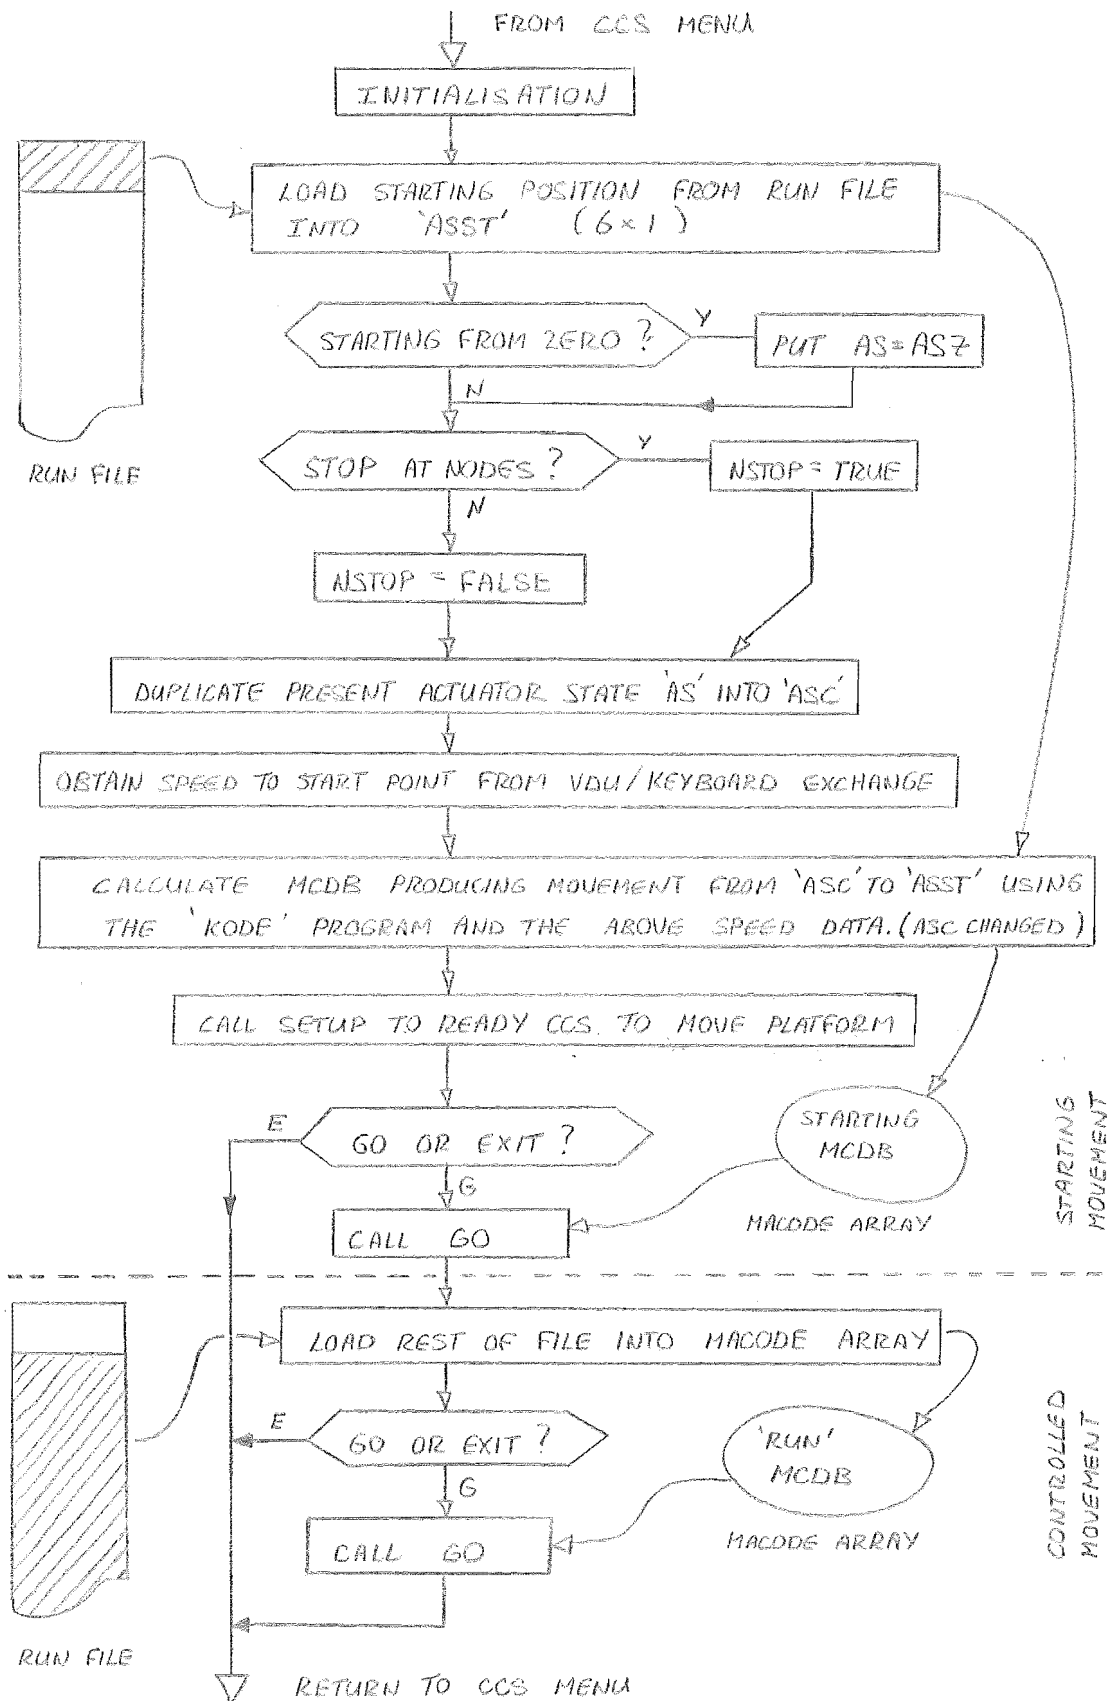 FROM CCS MENU
INITIALISATION
LOAD STARTING POSITION FROM RUN FILE
INTO 'ASST' (6×1)
RUN FILE
STARTING FROM ZERO?
Y
PUT AS=ASZ
N
STOP AT NODES?
Y
NSTOP = TRUE
N
NSTOP = FALSE
DUPLICATE PRESENT ACTUATOR STATE 'AS' INTO 'ASC'
OBTAIN SPEED TO START POINT FROM VDU/KEYBOARD EXCHANGE
CALCULATE MCDB PRODUCING MOVEMENT FROM 'ASC' TO 'ASST' USING
THE 'KODE' PROGRAM AND THE ABOVE SPEED DATA. (ASC CHANGED)
CALL SETUP TO READY CCS TO MOVE PLATFORM
E
GO OR EXIT?
G
CALL GO
STARTING
MCDB
MACODE ARRAY
STARTING
MOVEMENT
LOAD REST OF FILE INTO MACODE ARRAY
E
GO OR EXIT?
G
CALL GO
'RUN'
MCDB
MACODE ARRAY
CONTROLLED
MOVEMENT
RUN FILE
RETURN TO CCS MENU